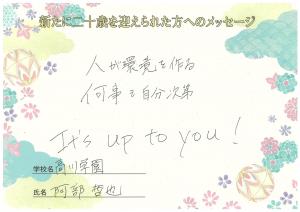 新たに二十歳を迎えられた方へのメッセージ
人が環境を作る
何事も自分次第
It's up to you!
学校名 高川学園
氏名 阿部 哲也